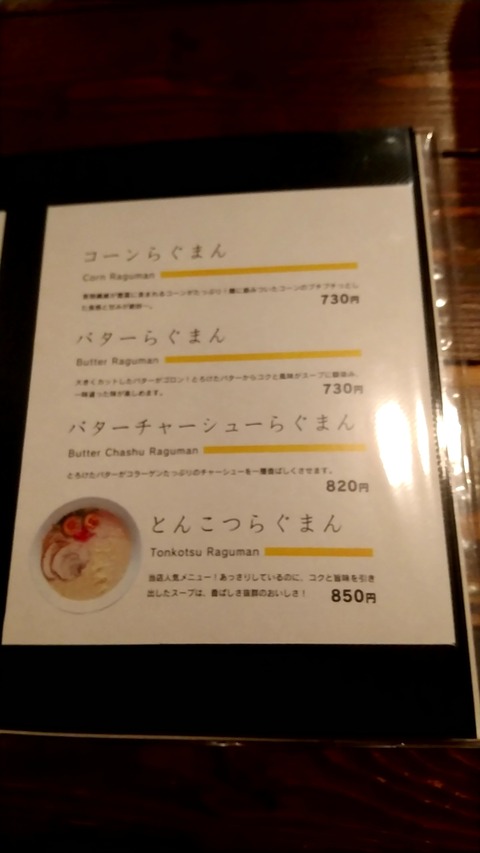 コーンらぐまん
Corn Raguman
食物繊維が豊富に含まれるコーンがたっぷり！麺に絡みついたコーンのプチプチっとし
た食感と甘みが絶妙〜。
730円
バターらぐまん
Butter Raguman
大きくカットしたバターがゴロン！とろけたバターからコクと風味がスープに馴染み、
一味違った味が楽しめます。
730円
バターチャーシューらぐまん
Butter Chashu Raguman
とろけたバターがコラーゲンたっぷりのチャーシューを一層香ばしくさせます。
820円
とんこつらぐまん
Tonkotsu Raguman
当店人気メニュー！あっさりしているのに、コクと旨味を引き
出したスープは、香ばしさ抜群のおいしさ！
850円